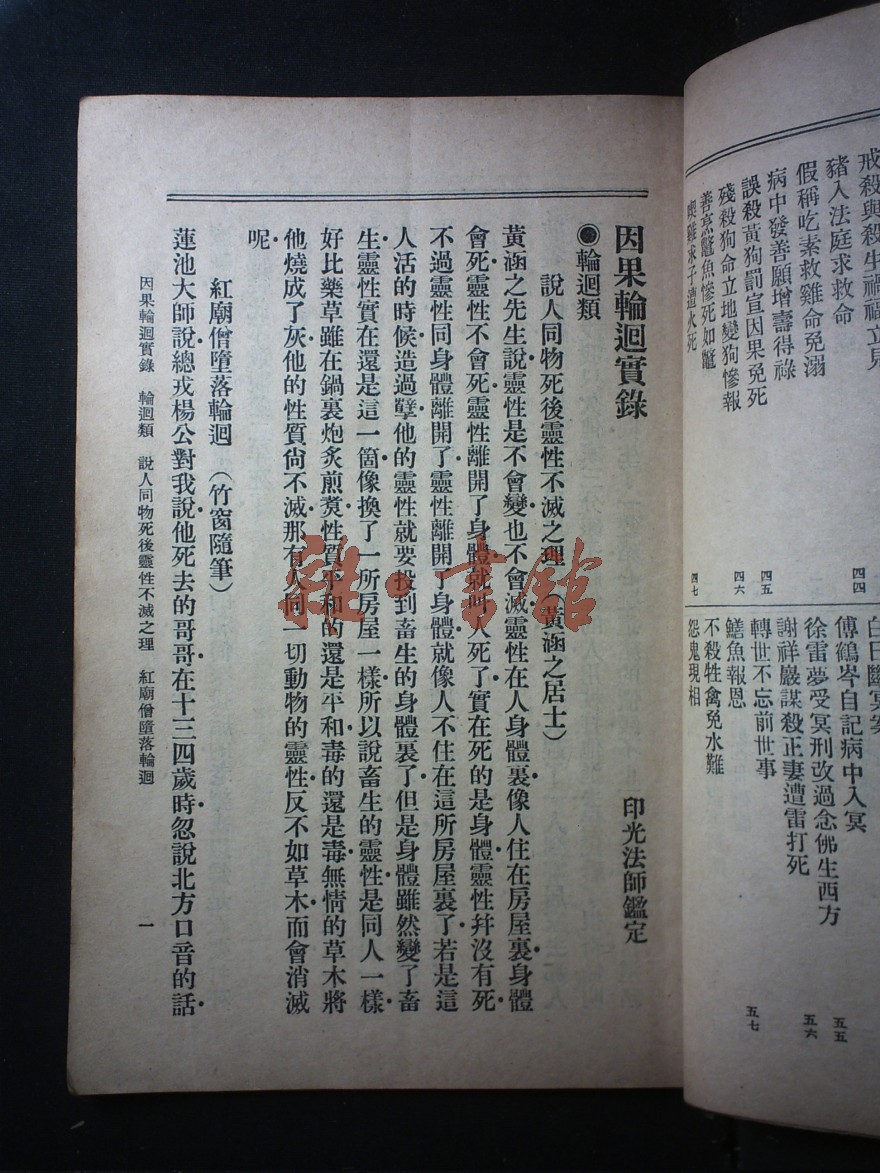 戒殺與殺生禍福立見
豬入法庭求救命
四四
假稱吃素救雞命免溺
病中發善願增壽得祿
四五
誤殺黃狗罰宣因果免死
殘殺狗命立地變狗慘報
四六
善烹鱉魚慘死如鱉
喫雞球子遭火死
四七
白日斷冥案
傅鶴岑自記病中入冥
五五
徐雷夢受冥刑改過念佛生西方
五六
謝祥巖謀殺正妻遭雷打死
轉世不忘前世事
五七
鱔魚報恩
不殺牲禽免水難
怨鬼現相
因果輪迴實錄
印光法師鑑定
●輪迴類
說人同物死後靈性不滅之理(黃涵之居士)
黃涵之先生說靈性是不會變也不會滅靈性在人身體裏像人住在房屋裏身體
會死靈性不會死靈性離開了身體就叫人死了實在死的是身體靈性幷沒有死
不過靈性同身體離開了靈性離開了身體就像人不住在這所房屋裏了若是這
人活的時候造過孽他的靈性就要投到畜生的身體裏了但是身體雖然變了畜
生靈性實在還是這一箇像換了一所房屋一樣所以說畜生的靈性是同人一樣
好比藥草雖在鍋裏炮炙煎熬性質平和的還是平和毒的還是毒無情的草木將
他燒成了灰他的性質尙不滅那有人同一切動物的靈性反不如草木而會消滅
呢
紅廟僧墮落輪迴(竹窗隨筆)
蓮池大師說總戎楊公對我說他死去的哥哥在十三四歲時忽說北方口音的話
因果輪迴實錄 輪迴類 說人同物死後靈性不滅之理 紅廟僧墮落輪迴
一
雜·書館